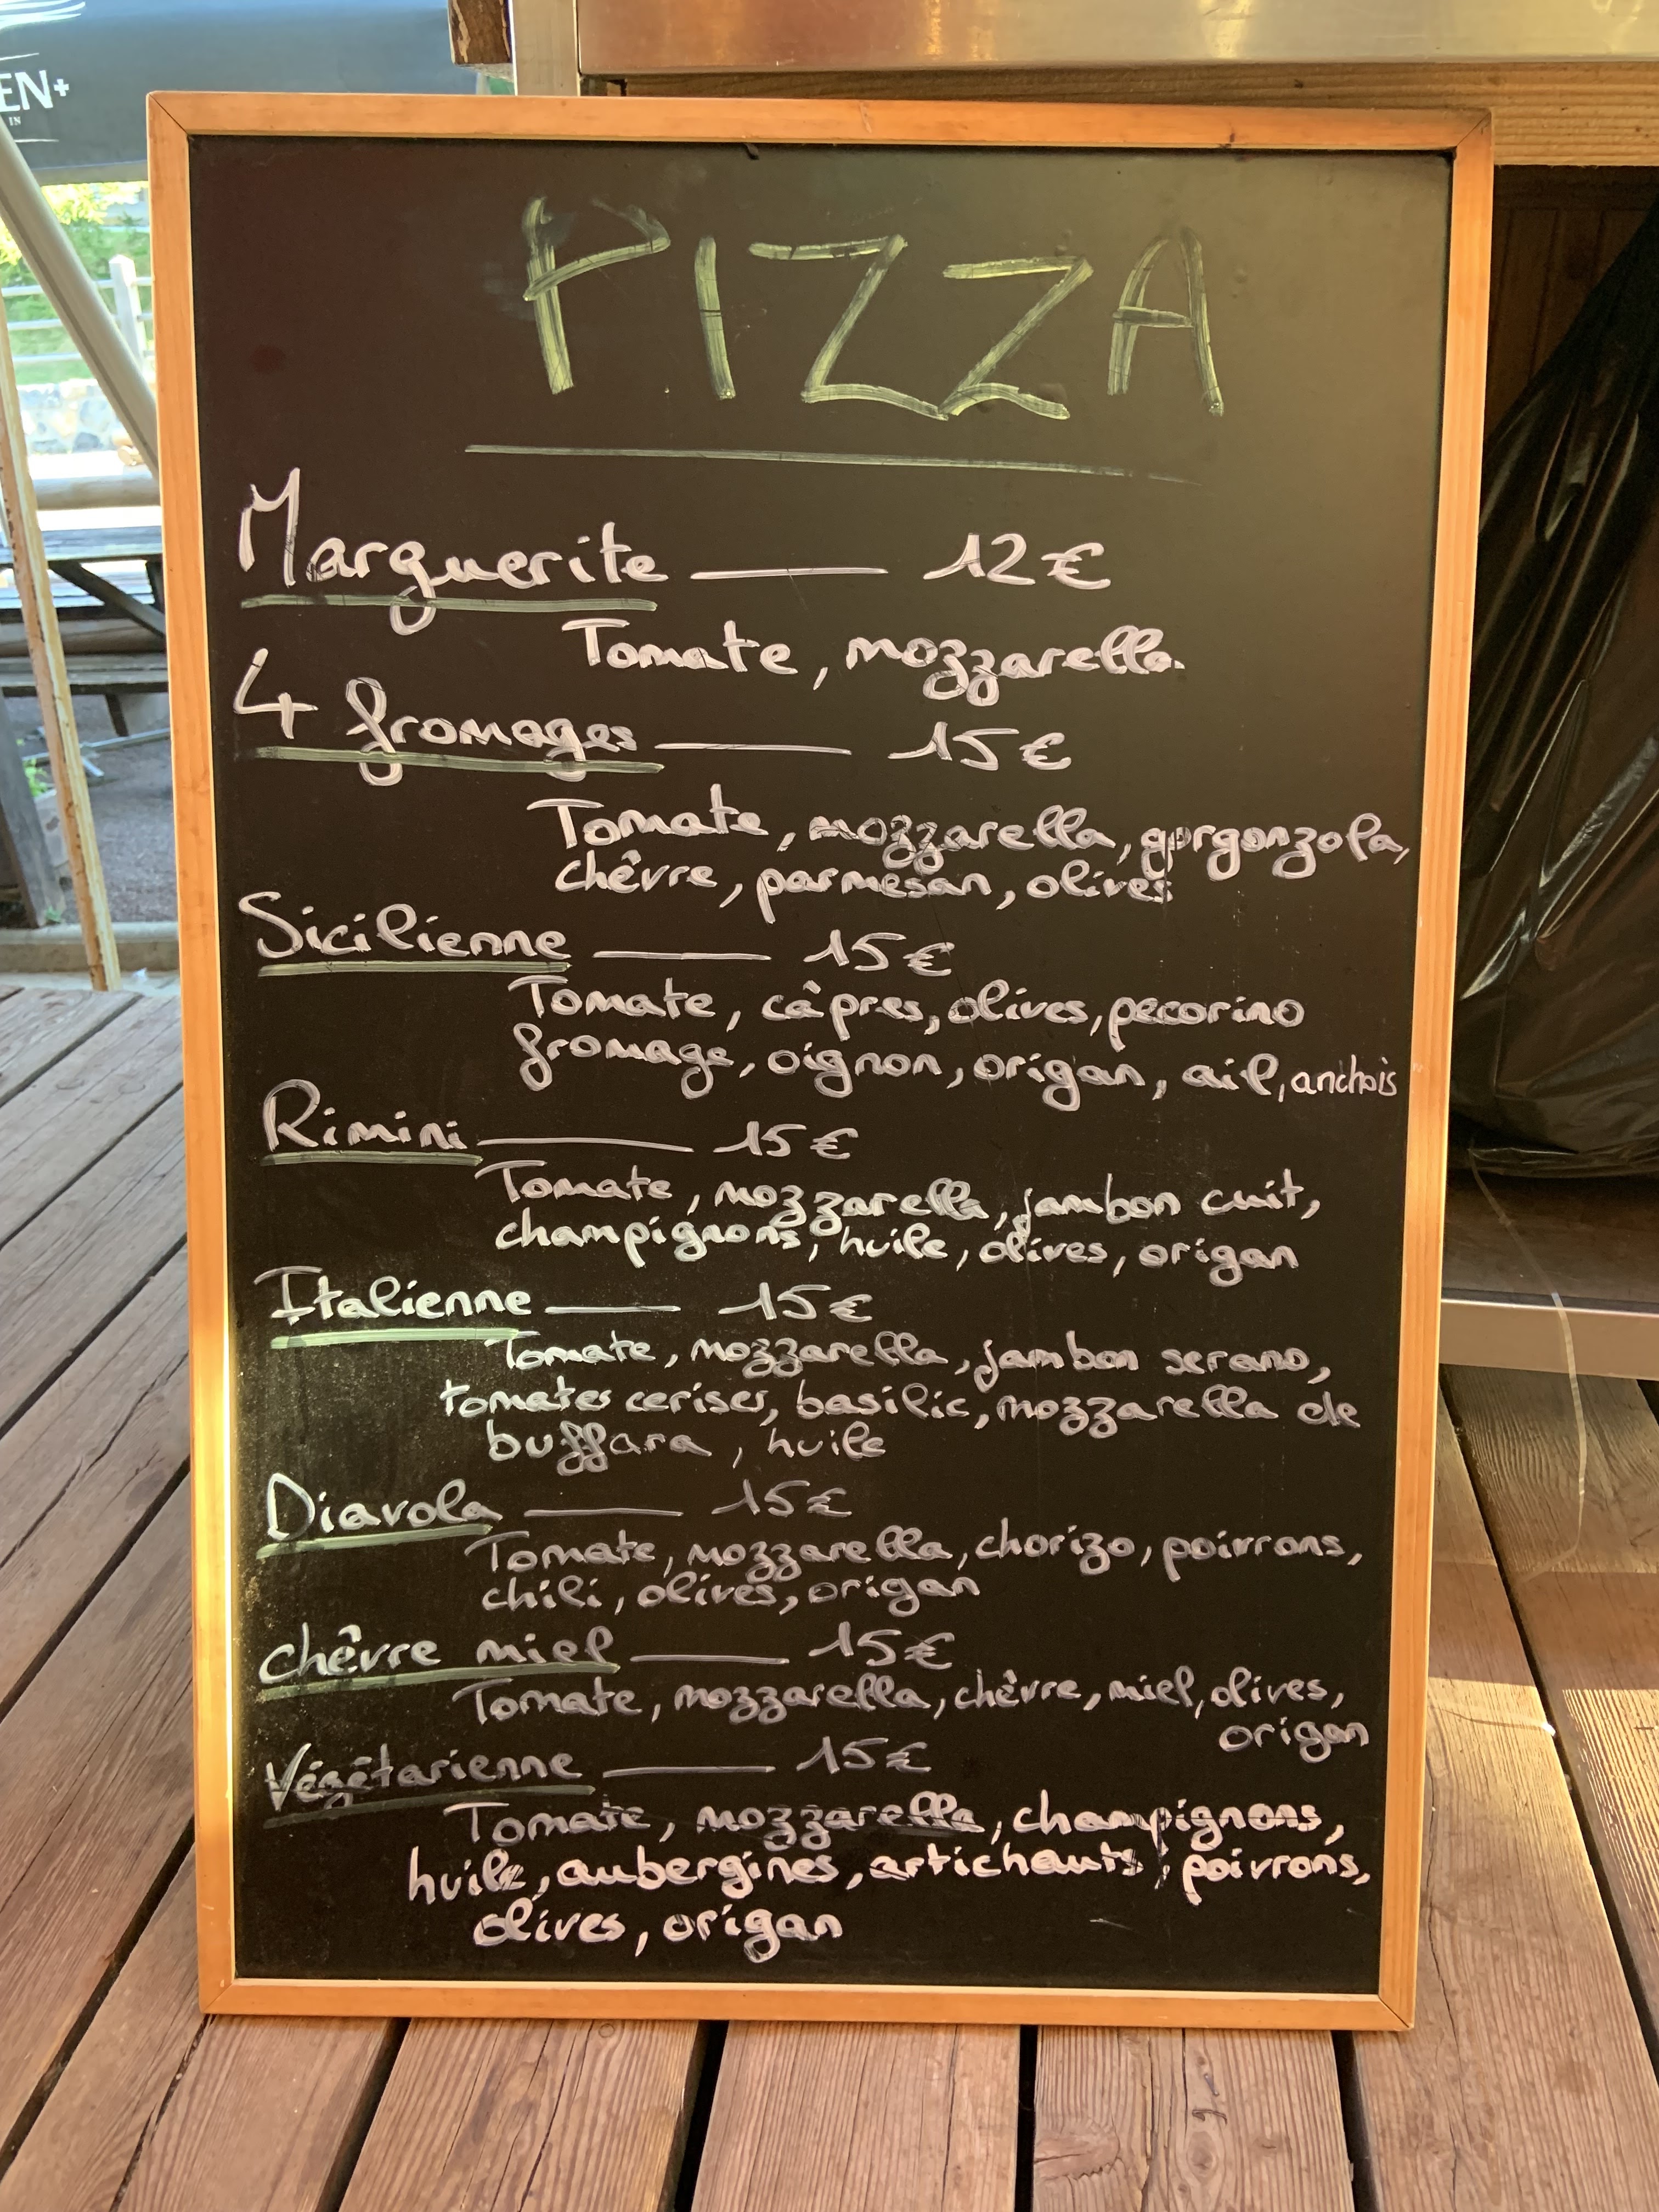 EN+
IS
PIZZA
Marguerite — 12€
Tomate, mozzarella
4 fromages — 15€
Tomate, mozzarella, gorgonzola,
chêvre, parmesan, olives
Sicilienne — 15€
Tomate, câpres, olives, pecorino
fromage, oignon, origan, ail, anchois
Rimini — 15€
Tomate, mozzarella, jambon cuit,
champignons, huile, olives, origan
Italienne — 15€
Tomate, mozzarella, jambon serano,
tomates cerises, basilic, mozzarella de
buffara, huile
Diavola — 15€
Tomate, mozzarella, chorizo, poivrons,
chili, olives, origan
chêvre miel — 15€
Tomate, mozzarella, chêvre, miel, olives,
origan
Végétarienne — 15€
Tomate, mozzarella, champignons,
huile, aubergines, artichauts, poivrons,
olives, origan